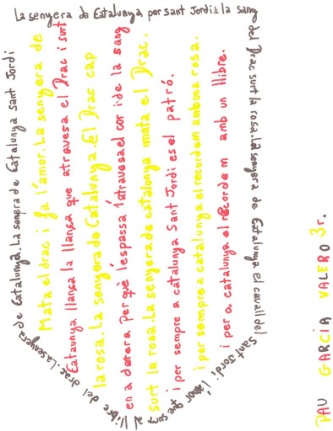 La senyera de Catalunya per sant Jordi i la sang
del Drac surt la rosa. La senyera de Catalunya el cavall del
Sant Jordi l'amor que surt
al llibre del drac. La senyera de Catalunya. La senyera de Catalunya sant Jordi
Mata el drac i fa l'amor. La senyera de
Cataunya llansa la llança que atravesa el Drac i surt
la rosa. La senyera de Catalunya. El Drac cap
en a darera Per què l'espassa l'atravesa el cor i de la sang
surt la rosa. La senyera de catalunya mata el Drac.
i per sempre a catalunya Sant Jordi es el patró.
i per sempre a catalunya el recordem amb una rosa.
i per a catalunya el recordem amb un llibre.
PAU GARCIA VALERO 3r.